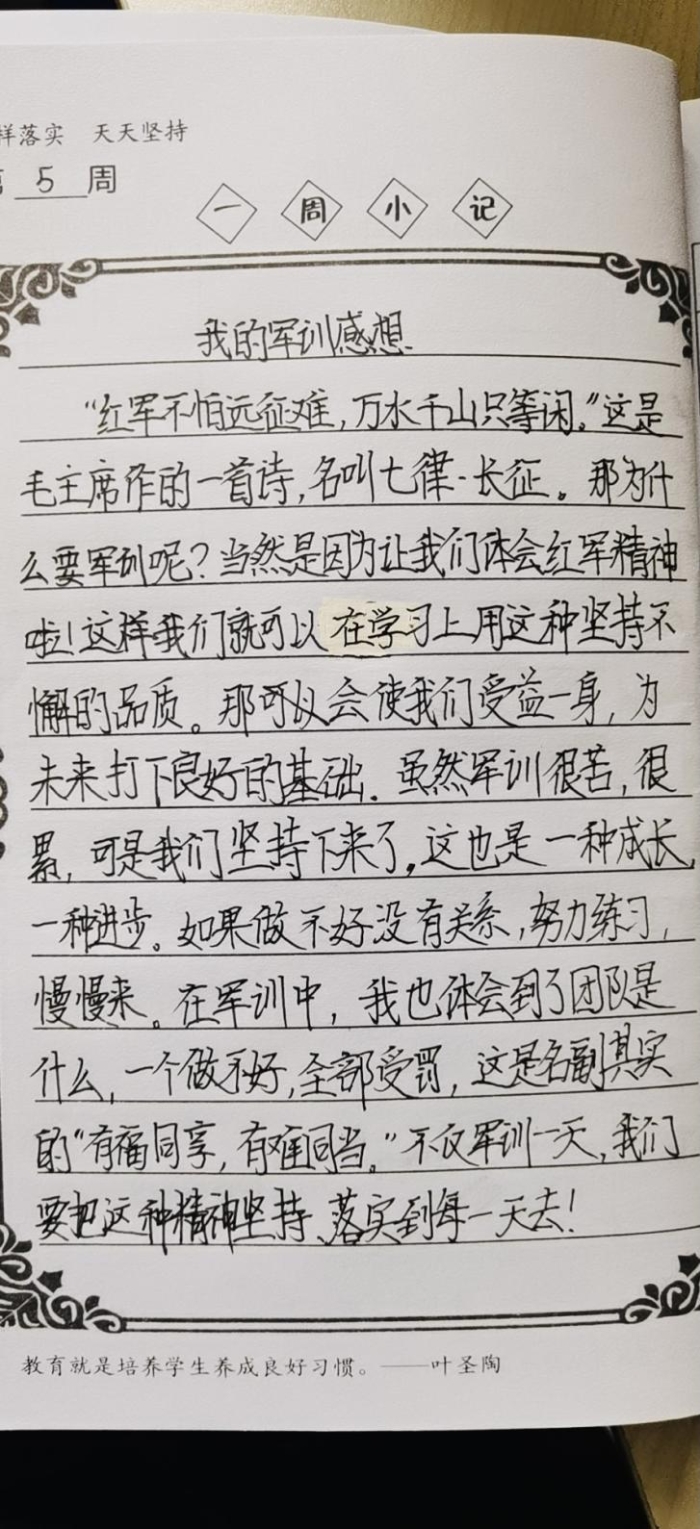 样落实 天天坚持
第 5 周
一周小记
我的军训感想
“红军不怕远征难,万水千山只等闲。”这是
毛主席作的一首诗,名叫七律·长征。那为什
么要军训呢?当然是因为让我们体会红军精神
啦!这样我们就可以在学习上用这种坚持不
懈的品质。那可以会使我们受益一身,为
未来打下良好的基础。虽然军训很苦,很
累,可是我们坚持下来了,这也是一种成长,
一种进步。如果做不好没有关系,努力练习,
慢慢来。在军训中,我也体会到了团队是
什么,一个做不好,全部受罚,这是名副其实
的“有福同享,有难同当。”不仅军训一天,我们
要把这种精神坚持、落实到每一天去!
教育就是培养学生养成良好习惯。——叶圣陶